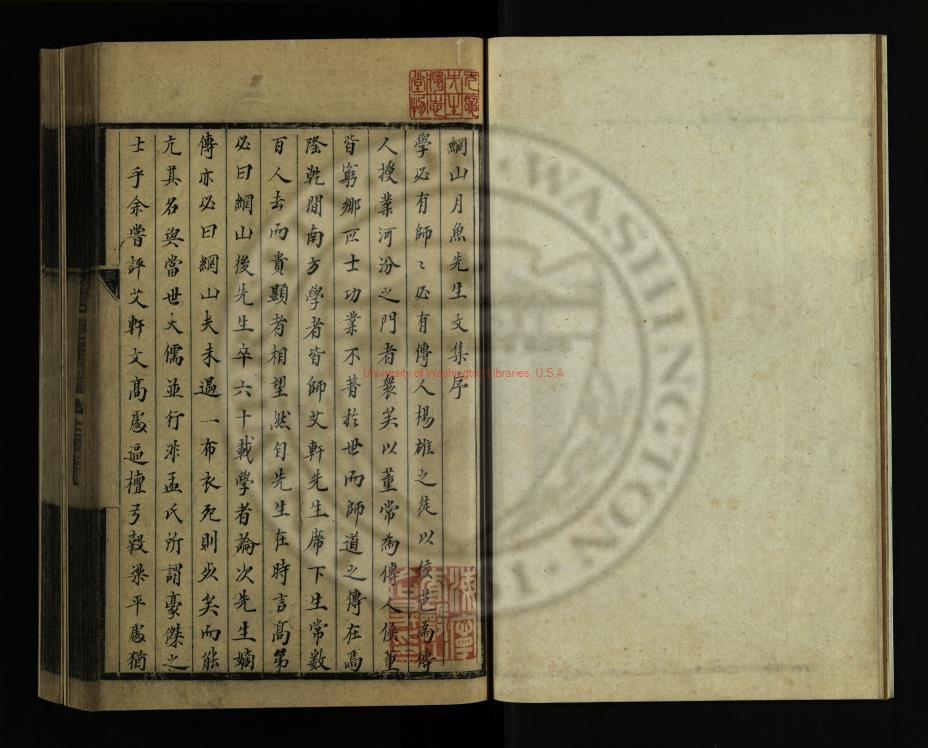 網山月魚先生文集序
學必有師〻必有傳人楊雄之徒以侯芭為傳
人授業河汾之門者衆矣以董常為傳人侯董
皆窮鄉匹士功業不著於世而師道之傳在焉
隆乾間南方學者皆師艾軒先生席下生常數
百人去而貴顯者相望然自先生在時言高第
必曰網山後先生卒六十載學者論次先生嫡
傳亦必曰網山夫未過一布衣死則敚矣而能
亢其名與當世大儒並行非孟氏所謂豪傑之
士乎余嘗評艾軒文高處逼檀弓穀梁平處猶
University of Washington Libraries, U.S.A
WASHINGTON